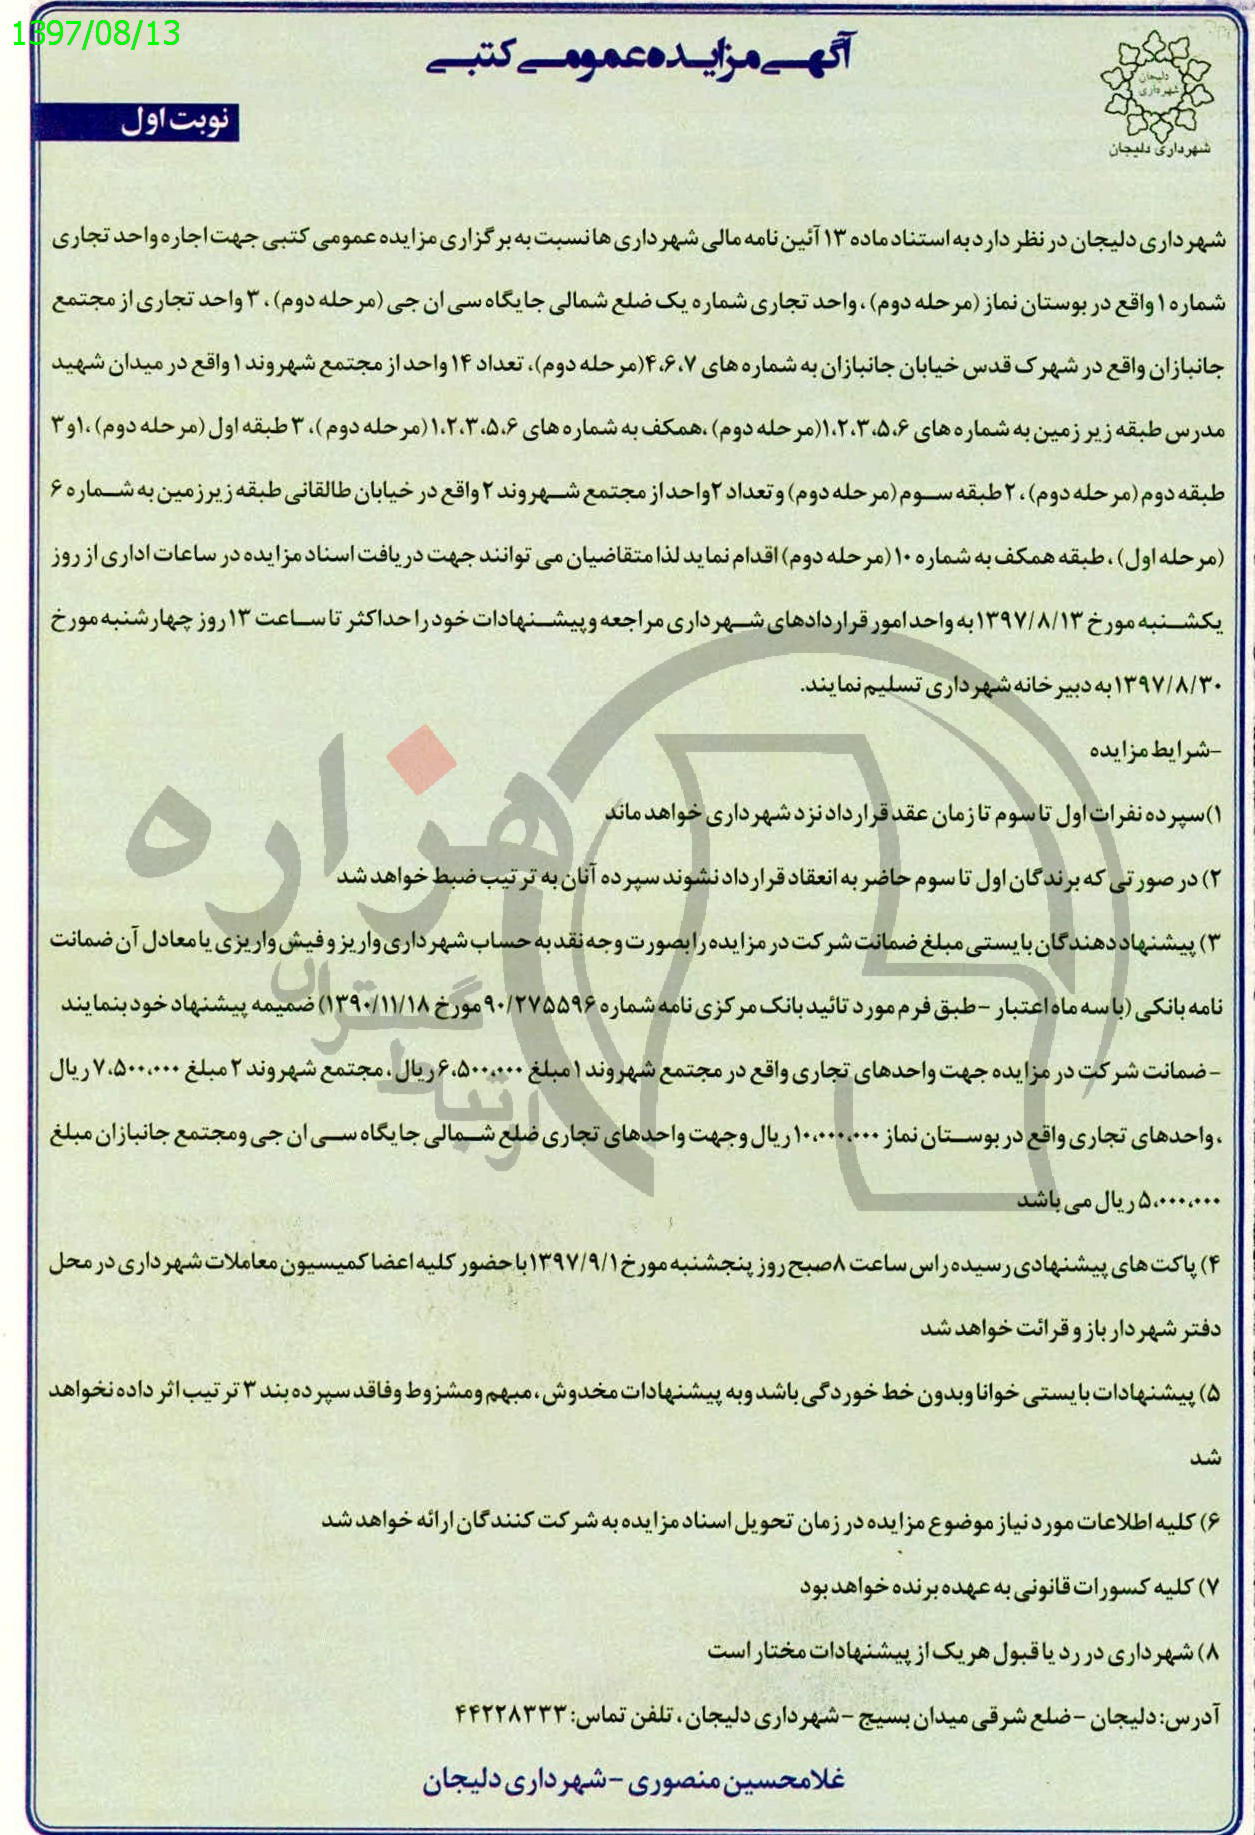 1397/08/13
آگهی مزایده عمومی کتبی
دلیجان
شهرداری
شهرداری دلیجان
نوبت اول
شهرداری دلیجان در نظر دارد به استناد ماده ۱۳ آئین نامه مالی شهرداری ها نسبت به برگزاری مزایده عمومی کتبی جهت اجاره واحد تجاری
شماره ۱ واقع در بوستان نماز (مرحله دوم)، واحد تجاری شماره یک ضلع شمالی جایگاه سی ان جی (مرحله دوم)، ۳ واحد تجاری از مجتمع
جانبازان واقع در شهرک قدس خیابان جانبازان به شماره های ۴،۶،۷(مرحله دوم)، تعداد ۱۴ واحد از مجتمع شهروند ۱ واقع در میدان شهید
مدرس طبقه زیر زمین به شماره های ۱،۲،۳،۵،۶(مرحله دوم) ،همکف به شماره های ۱،۲،۳،۵،۶(مرحله دوم )، ۳ طبقه اول (مرحله دوم) ،۱و۳
طبقه دوم (مرحله دوم)، ۲ طبقه سوم (مرحله دوم) و تعداد ۲واحد از مجتمع شهروند ۲ واقع در خیابان طالقانی طبقه زیرزمین به شماره ۶
(مرحله اول)، طبقه همکف به شماره ۱۰ (مرحله دوم) اقدام نماید لذا متقاضیان می توانند جهت دریافت اسناد مزایده در ساعات اداری از روز
یکشنبه مورخ ۱۳۹۷/۸/۱۳ به واحد امور قراردادهای شهرداری مراجعه و پیشنهادات خود را حداکثر تا ساعت ۱۳ روز چهارشنبه مورخ
۱۳۹۷/۸/۳۰ به دبیرخانه شهرداری تسلیم نمایند.
-شرایط مزایده
۱)سپرده نفرات اول تا سوم تا زمان عقد قرارداد نزد شهرداری خواهد ماند
۲) در صورتی که برندگان اول تا سوم حاضر به انعقاد قرارداد نشوند سپرده آنان به ترتیب ضبط خواهد شد
۳) پیشنهاد دهندگان بایستی مبلغ ضمانت شرکت در مزایده را بصورت وجه نقد به حساب شهرداری واریز و فیش واریزی یا معادل آن ضمانت
نامه بانکی (با سه ماه اعتبار -طبق فرم مورد تائید بانک مرکزی نامه شماره ۹۰/۲۷۵۵۹۶مورخ ۱۳۹۰/۱۱/۱۸) ضمیمه پیشنهاد خود بنمایند
-ضمانت شرکت در مزایده جهت واحدهای تجاری واقع در مجتمع شهروند ۱ مبلغ ۶،۵۰۰،۰۰۰ریال، مجتمع شهروند ۲ مبلغ ۷،۵۰۰،۰۰۰ ریال
،واحدهای تجاری واقع در بوستان نماز ۱۰،۰۰۰،۰۰۰ ریال وجهت واحدهای تجاری ضلع شمالی جایگاه سی ان جی ومجتمع جانبازان مبلغ
۵،۰۰۰،۰۰۰ ریال می باشد
۴) پاکت های پیشنهادی رسیده راس ساعت ۸صبح روز پنجشنبه مورخ ۱۳۹۷/۹/۱با حضور کلیه اعضا کمیسیون معاملات شهرداری در محل
دفتر شهردار باز و قرائت خواهد شد
۵) پیشنهادات بایستی خوانا وبدون خط خوردگی باشد وبه پیشنهادات مخدوش، مبهم ومشروط وفاقد سپرده بند ۳ ترتیب اثر داده نخواهد
شد
۶) کلیه اطلاعات مورد نیاز موضوع مزایده در زمان تحویل اسناد مزایده به شرکت کنندگان ارائه خواهد شد
۷) کلیه کسورات قانونی به عهده برنده خواهد بود
۸) شهرداری در رد یا قبول هر یک از پیشنهادات مختار است
آدرس: دلیجان -ضلع شرقی میدان بسیج -شهرداری دلیجان، تلفن تماس: ۴۴۲۲۸۳۳۳
غلامحسین منصوری -شهرداری دلیجان
هزاره